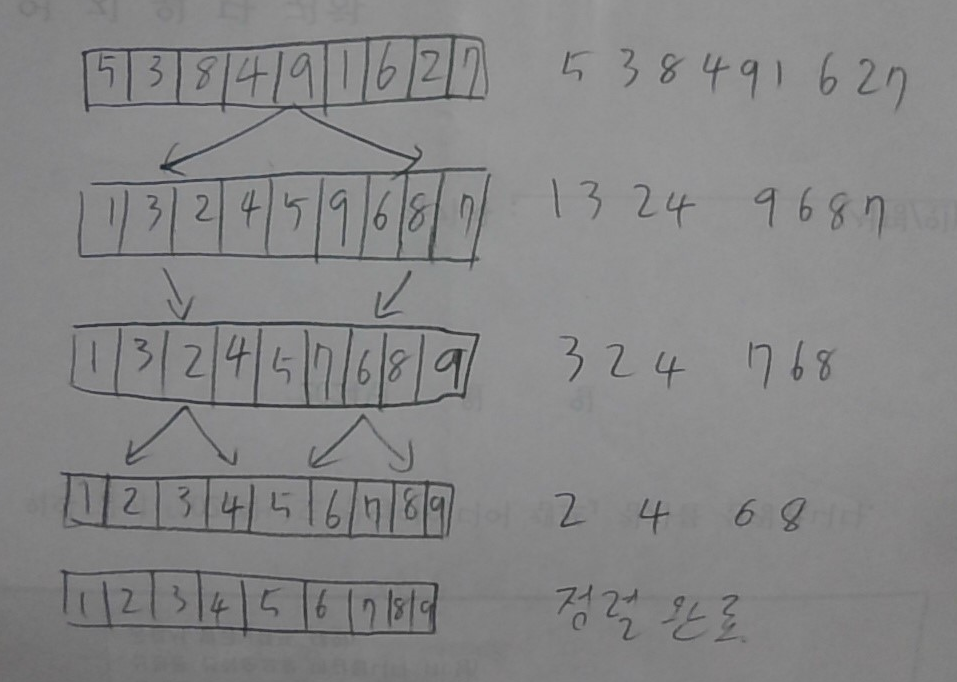 5 3 8 4 9 1 6 2 7 5 3 8 4 9 1 6 2 7
1 3 2 4 5 9 6 8 7 1 3 2 4 9 6 8 7
1 3 2 4 5 7 6 8 9 3 2 4 7 6 8
1 2 3 4 5 6 7 8 9 2 4 6 8
1 2 3 4 5 6 7 8 9 정렬 완료